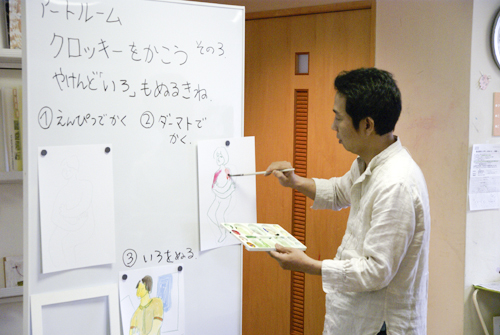 アートルーム
クロッキーをかこう その3.
やけんど「いろ」もぬるきね.
①えんぴつでかく
②ダーマトで
かく.
③いろをぬる